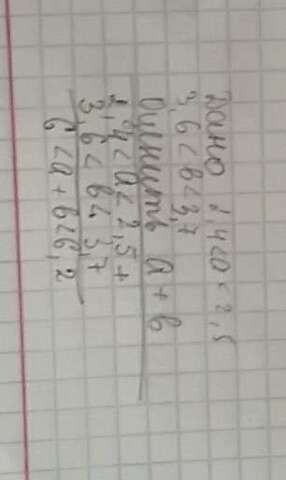 Дано 2,4<a<2,5
3,6<в<3,7
Оценить a+в
2,4<a<2,5+
3,6<в<3,7
6<a+в<6,2